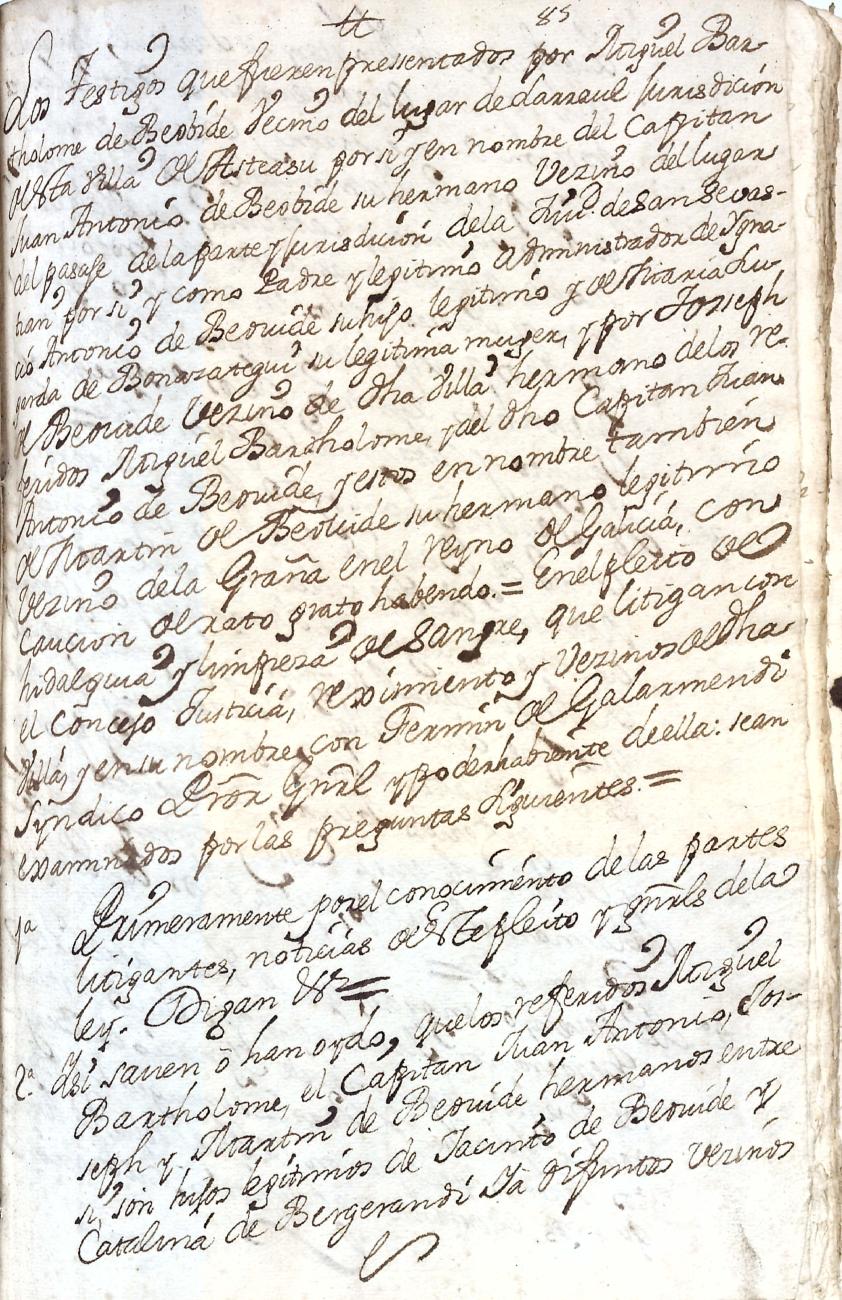 85
Los Testigos que fueren pressentados por Miguel Bar-
tholome de Beobide Vecino del lugar de Larraul Jurisdición
de esta Villa de Asteasu por si y en nombre del Capitan
Juan Antonio de Beobide su hermano Vezino del lugar
del pasaje dela parte y Jurisdición dela Ciud. de San Sevas-
tian por si y como Padre y legitimo Administrador de Ygna-
cio Antonio de Beovide su hijo legitimo y de Maria Lu-
garda de Bonazategui su legitima muger, y por Josseph
de Beovide Vezino de dha Villa hermano delos re-
feridos Miguel Bartholome, y del dho Capitan Juan
Antonio de Beovide, y estos en nombre tambien
de Martin de Beovide su hermano legitimo
Vezino dela Graña enel reyno de Galicia, con
caucion de rato grato habendo.= Enel pleito de
hidalguia y limpieza de Sangre, que litigan con
el Concejo Justicia, reximiento y Vezinos de dha
Villa, y en su nombre con Fermin de Galarmendi
Syndico Pror Gnrl y poderhabiente de ella: sean
examinados por las preguntas siguientes.=
1a Primeramente por el conocimiento de las partes
litigantes, noticias de este pleito y gnrls dela
ley. Digan &a=
2a Ytt si saven ô han oydo, que los referidos Miguel
Bartholome, el Capitan Juan Antonio, Jos-
seph y Martin de Beovide hermanos entre
si, son hijos legitimos de Jacinto de Beovide y
Catalina de Bergerandi Ya difuntos vezinos